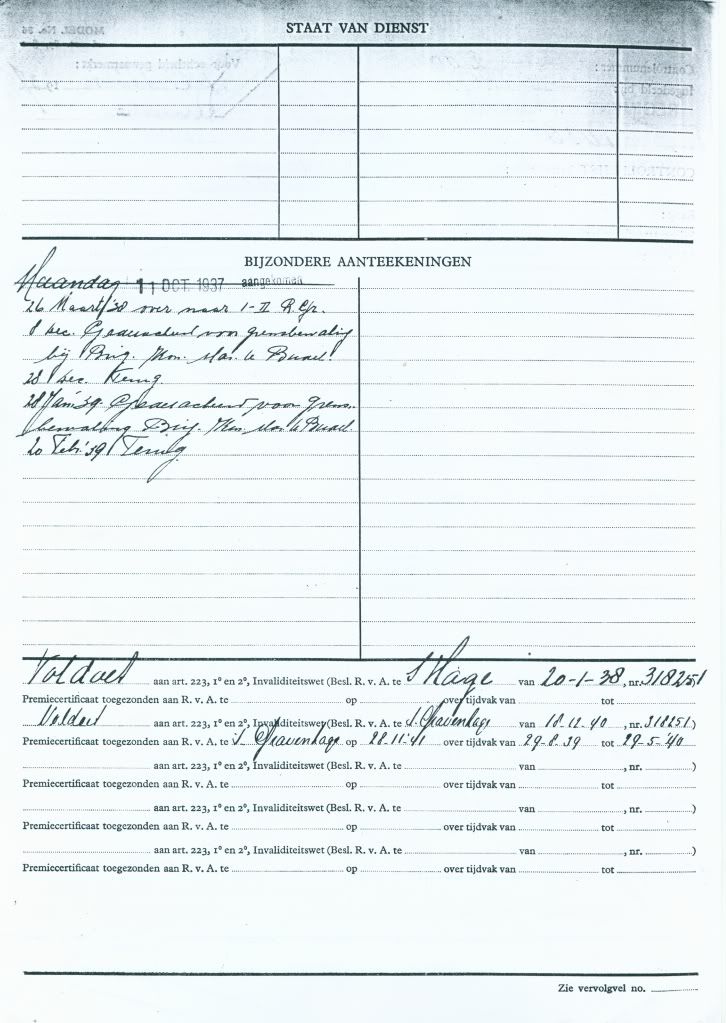 STAAT VAN DIENST
BIJZONDERE AANTEEKENINGEN
Maandag 11 OCT. 1937 aangekomen
26 Maart '38 over naar 1-II R.Gr.
8 dec. Gedetacheerd voor grensbewaking
bij Brig. Kon. Mar. te Budel.
23 dec. Terug.
28 Jan '39. Gedetacheerd voor grens
bewaking Brig. Kon Mar te Budel.
20 Febr. '39 Terug
Voldoet aan art. 223, 1° en 2°, Invaliditeitswet (Besl. R. v. A. te 's Hage van 20-1-38, nr. 318251
Premiecertificaat toegezonden aan R. v. A. te op over tijdvak van tot
Voldoet aan art. 223, 1° en 2°, Invaliditeitswet (Besl. R. v. A. te 's Gravenhage van 18-12-40, nr. 318251)
Premiecertificaat toegezonden aan R. v. A. te 's Gravenhage op 28-11-41 over tijdvak van 29-8-39 tot 29-5-'40
aan art. 223, 1° en 2°, Invaliditeitswet (Besl. R. v. A. te van , nr. )
Premiecertificaat toegezonden aan R. v. A. te op over tijdvak van tot
aan art. 223, 1° en 2°, Invaliditeitswet (Besl. R. v. A. te van , nr. )
Premiecertificaat toegezonden aan R. v. A. te op over tijdvak van tot
aan art. 223, 1° en 2°, Invaliditeitswet (Besl. R. v. A. te van , nr. )
Premiecertificaat toegezonden aan R. v. A. te op over tijdvak van tot
Zie vervolgvel no.